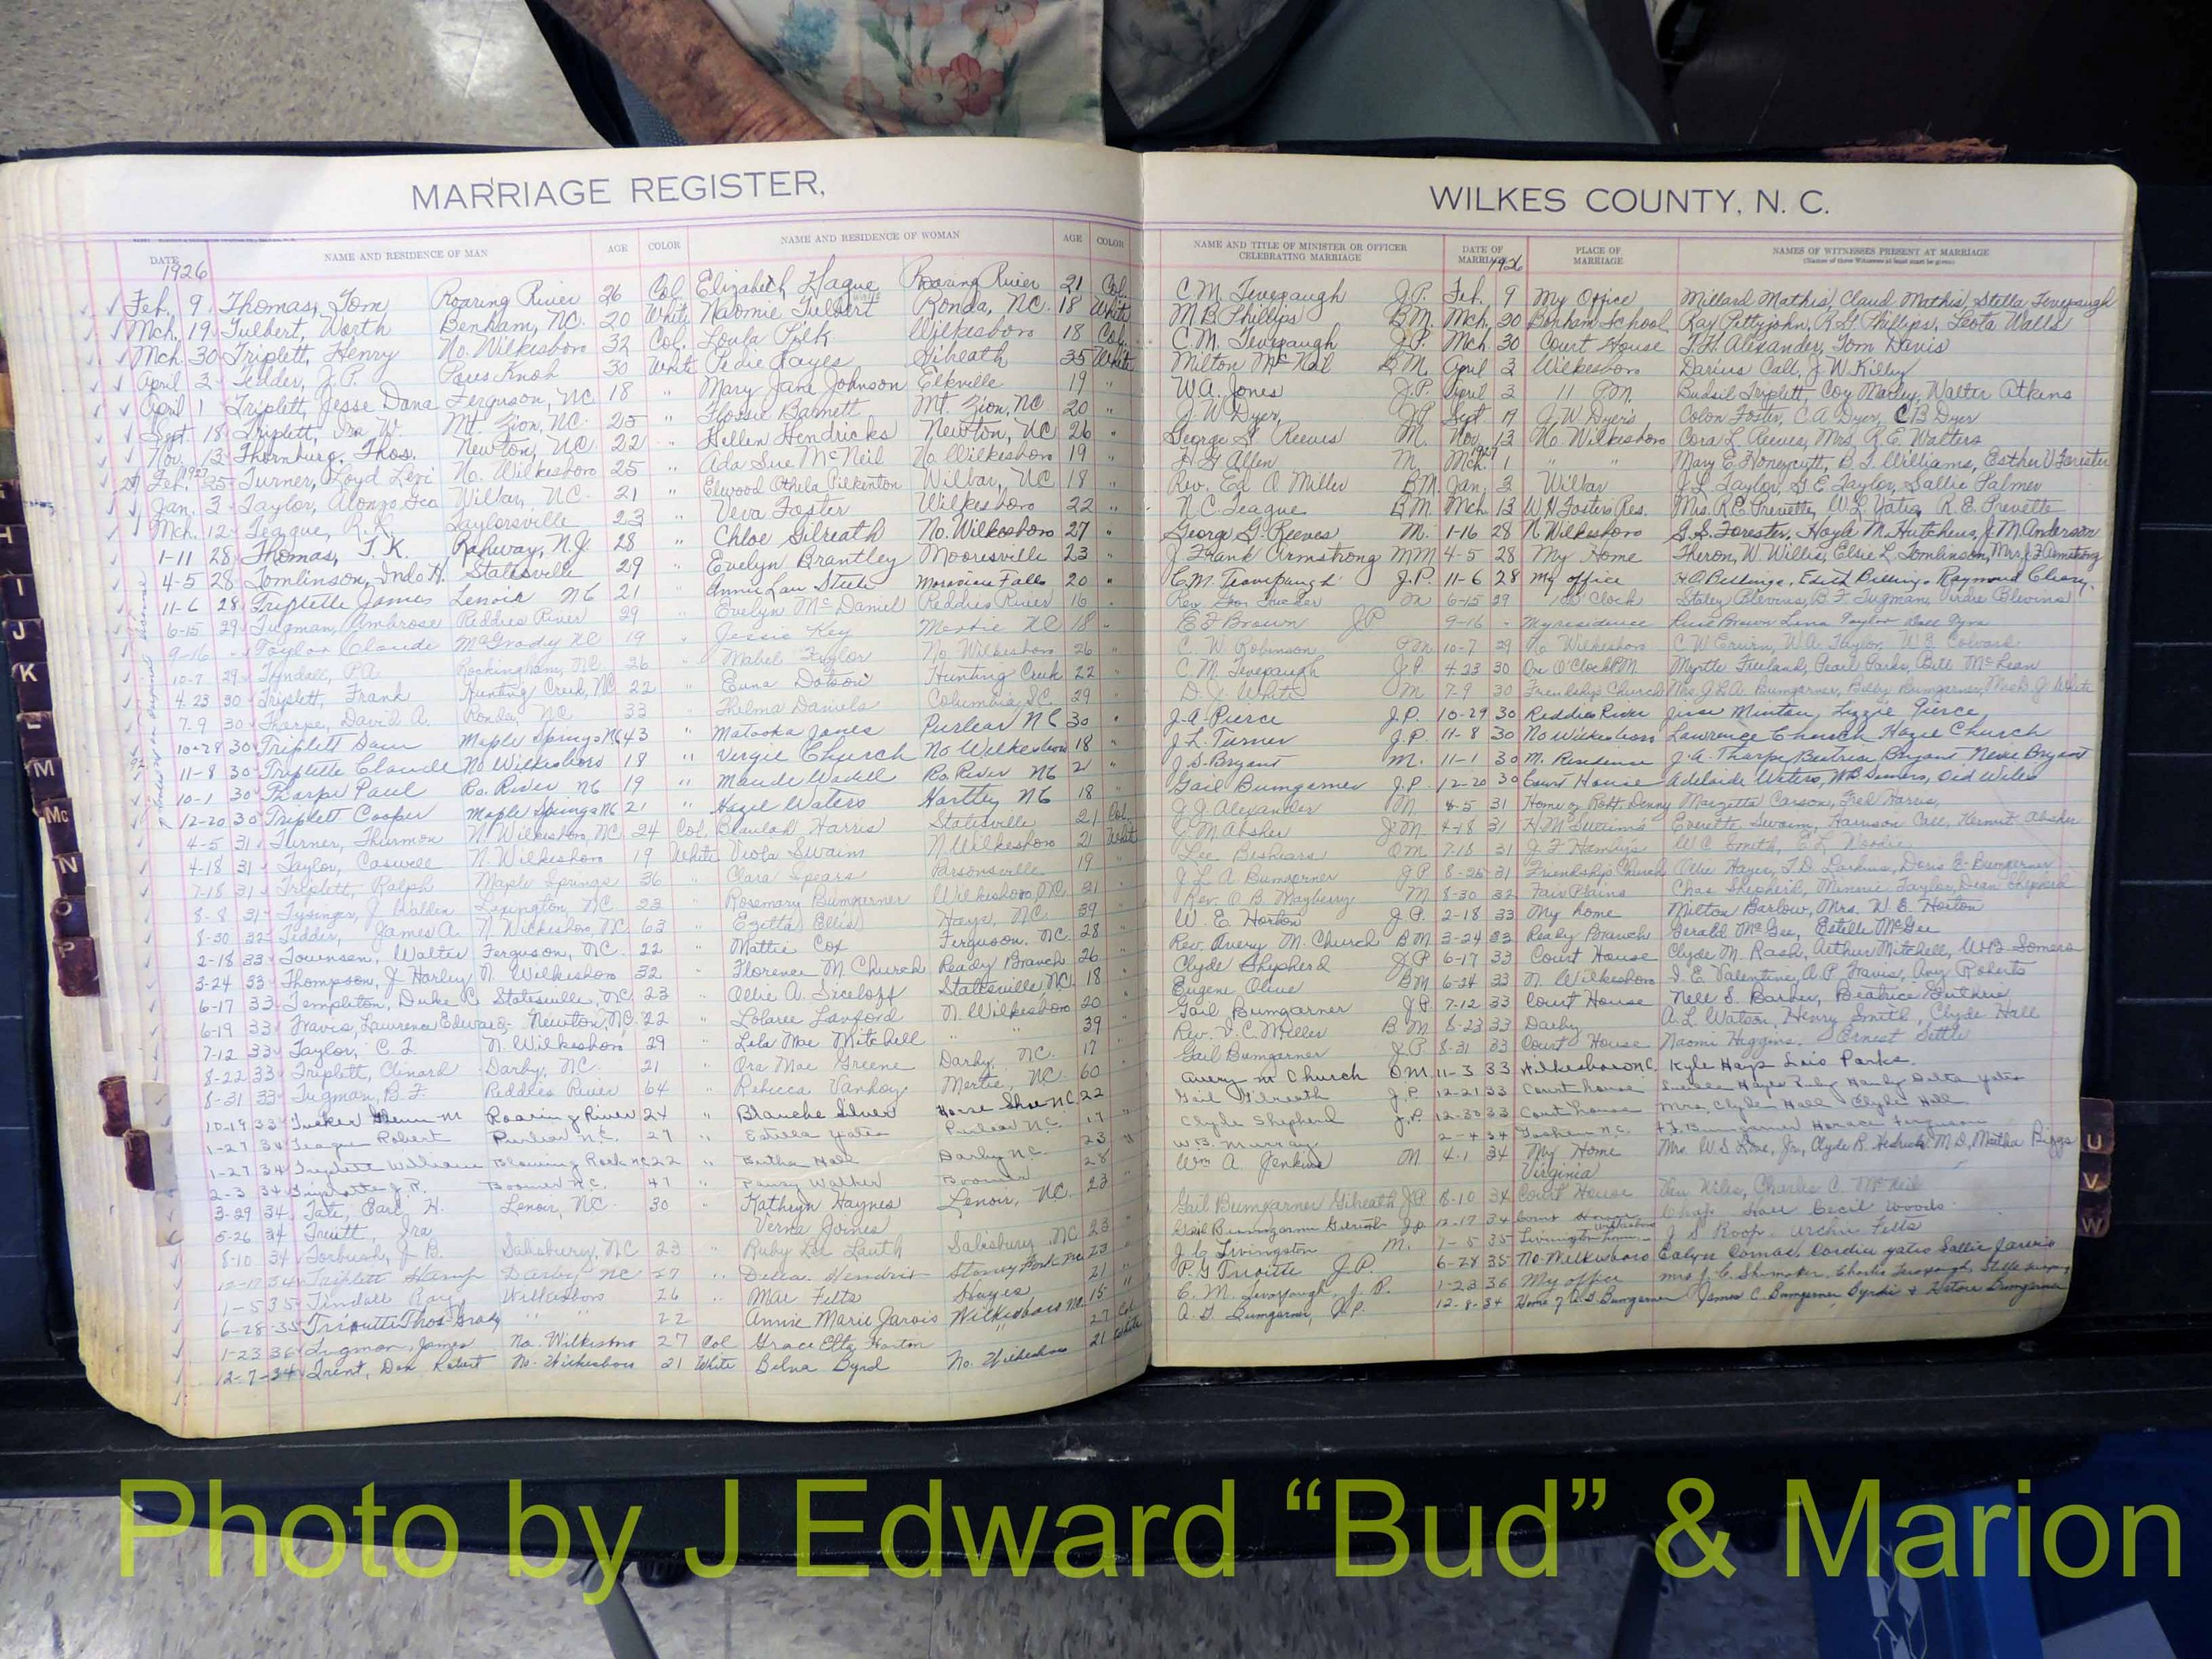 MARRIAGE REGISTER,
WILKES COUNTY, N. C.
DATE NAME AND RESIDENCE OF MAN AGE COLOR NAME AND RESIDENCE OF WOMAN AGE COLOR
NAME AND TITLE OF MINISTER OR OFFICER CELEBRATING MARRIAGE DATE OF MARRIAGE PLACE OF MARRIAGE NAMES OF WITNESSES PRESENT AT MARRIAGE
(Names of three Witnesses at least must be given)
1926
1926
Feb. 9 Thomas, Tom Roaring River 26 Col Elizabeth Hague Roaring River 21 Col
Mch. 19 Tulbert, Worth Benham, N.C. 20 White Naomie Tulbert Ronda, N.C. 18 White
Mch. 30 Triplett, Henry No. Wilkesboro 32 Col. Loula Polk Wilkesboro 18 Col.
April 2 Tedder, J. P. Pores Knob 30 White Pedie Hayes Gilreath 35 White
April 1 Triplett, Jesse Dana Ferguson, NC 18 " Mary Jane Johnson Elkville 19 "
Sept. 18 Triplett, Ira W. Mt. Zion, N.C. 25 " Flossie Barnett Mt. Zion, N.C. 20 "
Nov. 13 Thornburg, Thos. Newton, N.C. 22 " Hellen Hendricks Newton, N.C. 26 "
1927
Feb. 25 Turner, Loyd Levi No. Wilkesboro 25 " Ada Sue McNeil No. Wilkesboro 19 "
Jan. 3 Taylor, Alonzo Geo Wilbar, N.C. 21 " Elwood Othela Pilkinton Wilbar, N.C. 18 "
Mch. 12 Teague, R. L. Taylorsville 23 " Veva Foster Wilkesboro 22 "
1-11 28 Thomas, T. K. Rahway, N.J. 28 " Chloe Gilreath No. Wilkesboro 27 "
4-5 28 Tomlinson, Statesville 29 " Evelyn Brantley Mooresville 23 "
11-6 28 Triplette James Lenoir NC 21 " Annie Lau Steele Moravian Falls 20 "
6-15 29 Tugman, Ambrose Reddies River 29 Evelyn McDaniel Reddies River 16
9-16 Taylor Claude McGrady NC 19 " Jessie Key Mertie NC 18
10-7 29 Tyndall, P.A. Rockingham, N.C. 26 " Mabel No. Wilkesboro 26
4 23 30 Triplett, Frank Hunting Creek, NC 22 " Euna Dotson Hunting Creek 22
7-9 30 Tharpe, David A. Ronda, NC 33 Thelma Daniels Columbia, S.C. 29
10-28 30 Triplett Dam Maple Springs NC 43 " Matooka Jones Purlear NC 30
11-8 30 Triplette Claude No Wilkesboro 18 " Vergie Church No Wilkesboro 18
10-1 30 Tharpe Paul Ro. River NC 19 " Maude Wadell Ro. River NC 2
12-20 30 Triplett Cooper Maple Springs NC 21 " Hazie Waters Hartley NC 18
4-5 31 Turner, Thurmon N. Wilkesboro, N.C. 24 Col. Beaulah Harris Statesville 21 Col.
4-18 31 Taylor, Caswell N. Wilkesboro 19 White Viola Swaim N. Wilkesboro 21 White
7-18 31 Triplett, Ralph Maple Springs 36 Clara Spears Parsonsville 19
8-8 31 Tysinger, J. Walden Lexington, N.C. 23 " Rosemary Bumgarner Wilkesboro, N.C. 21
8-30 32 Tedder, James A. N. Wilkesboro, NC 63 " Ezetta Ellis Hays, N.C. 39
2-18 33 Townsen, Walter Ferguson, N.C. 22 " Mattie Cox Ferguson, N.C. 28
3-24 33 Thompson, J Harley N. Wilkesboro 32 " Florence M. Church Ready Branch 26
6-17 33 Templeton, Duke C. Statesville, N.C. 23 " Ollie A. Siceloff Statesville NC 18
6-19 33 Travis, Lawrence Edward Newton, N.C. 22 " Lolaree Lanford N. Wilkesboro 20
7-12 33 Taylor, C. T. N. Wilkesboro 29 " Lila Mae Mitchell " 39
8-22 33 Triplett, Clinard Darby, N.C. 21 " Ora Mae Greene Darby, N.C. 17
8-31 33 Tugman, B. F. Reddies River 64 " Rebecca Vanhoy Mertie, N.C. 60
10-19 33 Tucker Glenn M Roaring River 24 " Blanche Silver Horse Shoe NC 22
1-27 34 Teague Robert Purlear N.C. 27 " Estella Yates Purlear NC 17
1-27 34 Triplett William Blowing Rock NC 22 " Bertha Hall Darby NC 23
2-3 34 Triplette J. P. Boomer N.C. 47 " Pansy Walker Boomer 28
3-29 34 Tate, Earl H. Lenoir, N.C. 30 " Kathryn Haynes Lenoir, N.C. 23
5-26 34 Truitt, Ira Verna Joines
8-10 34 Torbush, J. B. Salisbury, N.C. 23 " Ruby Lee Lauth Salisbury, NC 23
12-17 34 Triplett Hamp Darby NC 27 " Hendrix Stoney Fork NC 23
1-5 35 Tindall Ray Wilkesboro 26 " Mae Felts Hayes 21
6-28-35 Thos. " 22 Annie Marie Jarvis Wilkesboro 15
1-23 36 Tugman, James No. Wilkesboro 27 Col Grace Etta Horton " 27 Col
12-7-34 Trent, Don Robert No. Wilkesboro 21 White Belva Byrd No. Wilkesboro 21 White
C. M. Tevepaugh J.P. Feb. 9 My Office Millard Mathis, Claud Mathis, Stella Tevepaugh
M. B. Phillips B.M. Mch. 20 Benham School Ray Pettyjohn, R. G. Phillips, Leota Walls
C. M. Tevepaugh J.P. Mch 30 Court House T. H. Alexander, Tom Davis
Milton McNeil B.M. April 2 Wilkesboro Darius Call, J. W. Kilby
W. A. Jones J.P. April 3 11 P.M. Triplett, Coy Marley, Walter Atkins
J. W. Dyer, J.P. Sept. 19 J. W. Dyer's Colon Foster, C. A. Dyer, C B Dyer
George G. Reeves M. Nov. 13 No Wilkesboro Cora L. Reeves, Mrs. R. E. Walters
1927
H. G. Allen M Mch. 1 " " Mary E. Honeycutt, B. T. Williams, Esther V Forester
Rev. Ed. O Miller B.M. Jan. 2 Wilbar J. L. Taylor, G. E. Taylor, Sallie Palmer
N. C. Teague B.M. Mch 13 W. H. Foster's Res. Mrs. R. E. Prevette, W. L. Yates, R. E. Prevette
George G. Reeves M. 1-16 28 N Wilkesboro G. S. Forester, Hoyle M. Hutchens, J. M. Anderson
J. Frank Armstrong MM 4-5 28 My Home Theron, W. Willis, Elsie L. Tomlinson, Mrs. J. F. Armstrong
C. M. Teavepaugh J.P. 11-6 28 My office H. O. Billings, Edith Billings, Raymond Cleary.
Rev. M 6-15 29 O'Clock Staley Blevins, B. F. Tugman, Virdie Blevins
E F Brown J P 9-16 My residence Brown Lina Taylor
C. W. Robinson 10-7 29 No Wilkesboro C. W. Erwin, W. A. Taylor,
C. M. Tevepaugh J.P. 4 23 30 One O'Clock PM Myrtle Freeland, Pearl Parks, Bill McLean
D. J. White M 7-9 30 Friendship Church Mrs. J. L. A. Bumgarner, Billy Bumgarner, Mrs. D. J. White
J. A. Pierce J.P. 10-29 30 Reddies River Jesse Minton, Lizzie Pierce
J. L. Turner J.P. 11-8 30 No Wilkesboro Lawrence Church Hazel Church
J. S. Bryant M. 11-1 30 M. Residence J. A. Tharpe, Beatrice Bryant, Nevie Bryant
Gail Bumgarner J.P. 12-20 30 Court House Adelaide Waters, WB Somers, Wiles
J. J. Alexander M 4-5 31 Home of Robt. Denny Marzetta Carson, Fred Harris,
J. M. Absher J.M. 4-18 31 H. M. Swaim's Everette Swaim, Harrison Call, Kermit Absher
Lee Beshears O M 7-18 31 J. F. Hamby's W. C. Smith, E. L. Woodie
J. L. A. Bumgarner J.P. 8-26 31 Friendship Church Ollie Hayes, T. D. Larkins, Doris E. Bumgarner
Rev. O. B. Mayberry M 8-30 32 Fair Plains Chas Shepherd, Minnie Taylor, Dean Shepherd
W. E. Horton J.P. 2-18 33 My home Milton Barlow, Mrs. W. E. Horton
Rev. Avery M. Church BM 3-24 33 Ready Branch Gerald McGee, Estelle McGee
Clyde Shepherd J.P 6-17 33 Court House Clyde M. Rash, Arthur Mitchell, W.B. Somers
Eugene Olive BM 6-24 33 N. Wilkesboro I. E. Valentine, A. P. Travis, Avy Roberts
Gail Bumgarner J.P. 7-12 33 Court House Nell S. Barber, Beatrice Guthrie
Rev. V. C. Miller B.M 8-23 33 Darby A. L. Watson, Henry Smith, Clyde Hall
Gail Bumgarner J.P 8-31 33 Court House Naomi Higgins. Ernest Settle
Avery M Church O M 11-3 33 Wilkesboro N.C. Kyle Hays Lois Parks.
Gail Gilreath J.P 12-21 33 Courthouse Lucille Hayes Ruby Hamby Delta Yates
Clyde Shepherd J.P. 12-30 33 Courthouse Mrs. Clyde Hall Clyde Hall
W. B. Murray 2-4 34 Goshen N.C. Bumgarner Horace Ferguson
Wm A. Jenkins M 4-1 34 My Home Mrs. W. S. Jr., Clyde R. Hedrick M.D, Martha Biggs
Virginia
Gail Bumgarner Gilreath J.P 8-10 34 Court House Wiles, Charles C. McNeil
Gail Bumgarner Gilreath J.P 12-17 34 Court House Wilkesboro Chap. Hall Cecil Woods
J. C. Livingston M. 1-5 35 Livingston home J. S. Roop Archie Felts
P. G J.P. 6-28 35 No. Wilkesboro Comas, Cordia Yates Sallie Jarvis
C. M. Tevepaugh, J. P. 1-23 36 My office Mrs J. C. Shumaker, Charles Tevepaugh, Stella Tevepaugh
A. G. Bumgarner, J.P. 12-8-34 Home of A. G. Bumgarner James C. Bumgarner Byrdie & Bumgarner
H
I
J
K
L
M
Mc
N
O
P
U
V
W
Photo by J Edward “Bud” & Marion